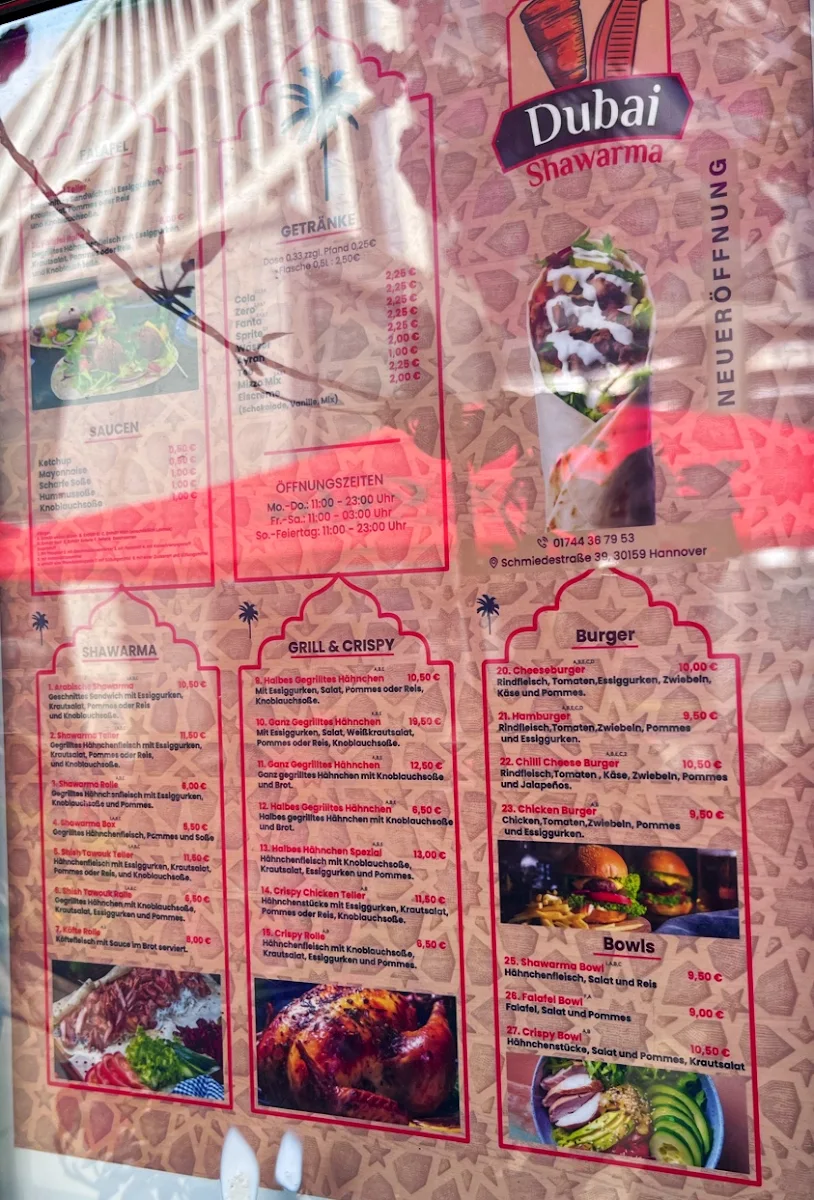 Dubai
Shawarma
NEUERÖFFNUNG
01744 36 79 53
Schmiedestraße 39, 30159 Hannover
FALAFEL
Sandwich mit Essiggurken,
Pommes oder Reis
und Knoblauchsoße.
und Knoblauchsoße
SAUCEN
Ketchup 0,50 €
Mayonnaise 0,50 €
Scharfe Soße 1,00 €
Hummussoße 1,00 €
Knoblauchsoße 1,00 €
GETRÄNKE
Dose 0,33 zzgl. Pfand 0,25€
Flasche 0,5l : 2,50€
Cola 2,25 €
Zero 2,25 €
Fanta 2,25 €
Sprite 2,25 €
Wasser 2,25 €
Ayran 2,00 €
1,00 €
Mezzo Mix 2,25 €
Eiscreme 2,00 €
(Schokolade, Vanille, Mix)
ÖFFNUNGSZEITEN
Mo.-Do.: 11:00 - 23:00 Uhr
Fr.-Sa.: 11:00 - 03:00 Uhr
So.-Feiertag: 11:00 - 23:00 Uhr
SHAWARMA
1. Arabische Shawarma 10,50 €
Geschnittes Sandwich mit Essiggurken,
Krautsalat, Pommes oder Reis
und Knoblauchsoße.
2. Shawarma Teller 11,50 €
Gegrilltes Hähnchenfleisch mit Essiggurken,
Krautsalat, Pommes oder Reis,
und Knoblauchsoße.
3. Shawarma Rolle 6,00 €
Gegrilltes Hähnchenfleisch mit Essiggurken,
Knoblauchsoße und Pommes.
4. Shawarma Box 5,50 €
Gegrilltes Hähnchenfleisch, Pommes und Soße
5. Shish Tawouk Teller 11,50 €
Hähnchenfleisch mit Essiggurken, Krautsalat,
Pommes oder Reis, und Knoblauchsoße.
6. Shish Tawouk Rolle 6,50 €
Gegrilltes Hähnchen mit Knoblauchsoße,
Krautsalat, Essiggurken und Pommes.
7. Köfte Rolle 8,00 €
Köftefleisch mit Sauce im Brot serviert.
GRILL & CRISPY
9. Halbes Gegrilltes Hähnchen 10,50 €
Mit Essiggurken, Salat, Pommes oder Reis,
Knoblauchsoße.
10. Ganz Gegrilltes Hähnchen 19,50 €
Mit Essiggurken, Salat, Weißkrautsalat,
Pommes oder Reis, Knoblauchsoße.
11. Ganz Gegrilltes Hähnchen 12,50 €
Ganz gegrilltes Hähnchen mit Knoblauchsoße
und Brot.
12. Halbes Gegrilltes Hähnchen 6,50 €
Halbes gegrilltes Hähnchen mit Knoblauchsoße
und Brot.
13. Halbes Hähnchen Spezial 13,00 €
Hähnchenfleisch mit Knoblauchsoße,
Krautsalat, Essiggurken und Pommes.
14. Crispy Chicken Teller 11,50 €
Hähnchenstücke mit Essiggurken, Krautsalat,
Pommes oder Reis, Knoblauchsoße.
15. Crispy Rolle 6,50 €
Hähnchenfleisch mit Knoblauchsoße,
Krautsalat, Essiggurken und Pommes.
Burger
20. Cheeseburger 10,00 €
Rindfleisch, Tomaten,Essiggurken, Zwiebeln,
Käse und Pommes.
21. Hamburger 9,50 €
Rindfleisch,Tomaten,Zwiebeln, Pommes
und Essiggurken.
22. Chilli Cheese Burger 10,50 €
Rindfleisch,Tomaten, Käse, Zwiebeln, Pommes
und Jalapeños.
23. Chicken Burger 9,50 €
Chicken,Tomaten,Zwiebeln, Pommes
und Essiggurken.
Bowls
25. Shawarma Bowl 9,50 €
Hähnchenfleisch, Salat und Reis
26. Falafel Bowl 9,00 €
Falafel, Salat und Pommes
27. Crispy Bowl 10,50 €
Hähnchenstücke, Salat und Pommes, Krautsalat